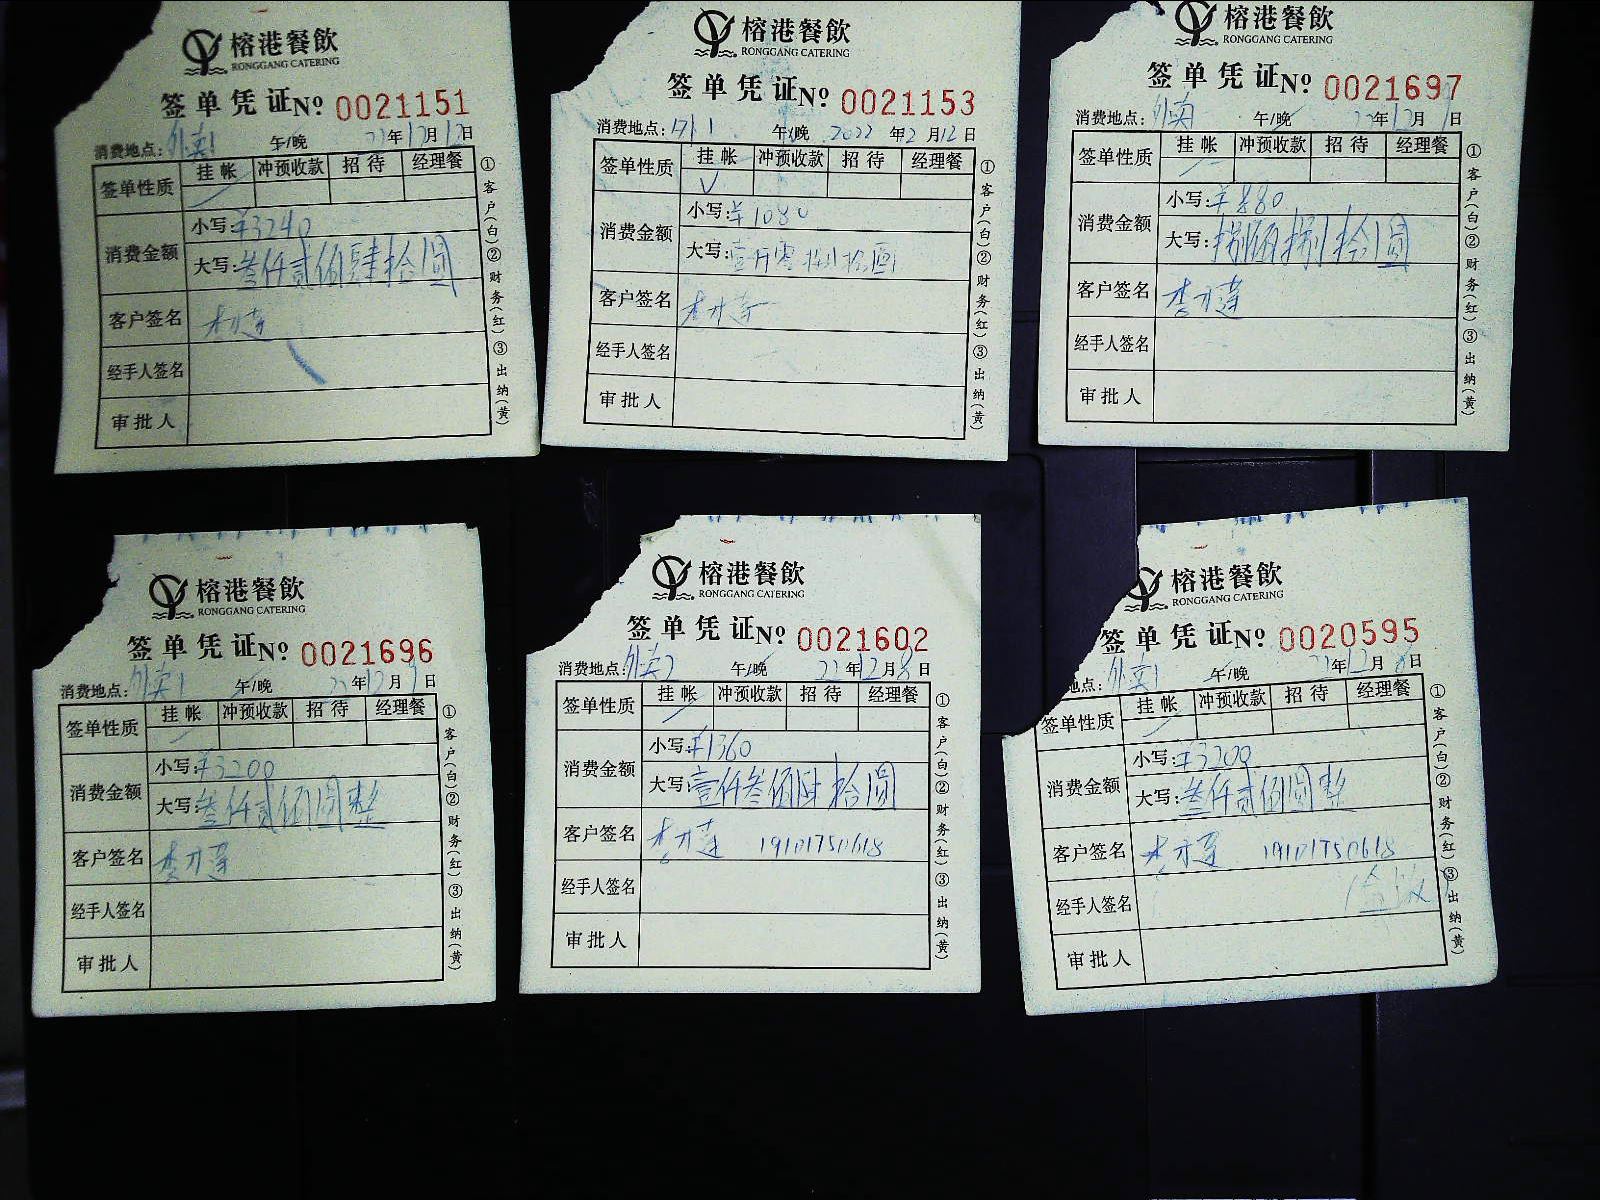 榕港餐飲
RONGGANG CATERING
签单凭证№ 0021151
消费地点:外卖1 午/晚 22年12月12日
签单性质 挂帐 冲预收款 招待 经理餐
消费金额
小写:¥3240
大写:叁仟贰佰肆拾圆
客户签名
经手人签名
审批人
①客户(白)②财务(红)③出纳(黄)
榕港餐飲
RONGGANG CATERING
签单凭证№ 0021153
消费地点: 午/晚 2022年12月12日
签单性质 挂帐 冲预收款 招待 经理餐
√
消费金额
小写:¥1080
大写:壹仟零捌拾圆
客户签名
经手人签名
审批人
①客户(白)②财务(红)③出纳(黄)
榕港餐飲
RONGGANG CATERING
签单凭证№ 0021697
消费地点:外卖 午/晚 22年12月9日
签单性质 挂帐 冲预收款 招待 经理餐
消费金额
小写:¥880
大写:捌佰捌拾圆
客户签名
经手人签名
审批人
①客户(白)②财务(红)③出纳(黄)
榕港餐飲
RONGGANG CATERING
签单凭证№ 0021696
消费地点:外卖1 午/晚 22年12月9日
签单性质 挂帐 冲预收款 招待 经理餐
消费金额
小写:¥3200
大写:叁仟贰佰圆整
客户签名
经手人签名
审批人
①客户(白)②财务(红)③出纳(黄)
榕港餐飲
RONGGANG CATERING
签单凭证№ 0021602
消费地点:外卖2 午/晚 22年12月8日
签单性质 挂帐 冲预收款 招待 经理餐
消费金额
小写:¥1360
大写:壹仟叁佰陆拾圆
客户签名 19101750618
经手人签名
审批人
①客户(白)②财务(红)③出纳(黄)
榕港餐飲
RONGGANG CATERING
签单凭证№ 0020595
地点:外卖1 午/晚 22年12月8日
签单性质 挂帐 冲预收款 招待 经理餐
消费金额
小写:¥3200
大写:叁仟贰佰圆整
客户签名 19101750618
经手人签名
审批人
①客户(白)②财务(红)③出纳(黄)